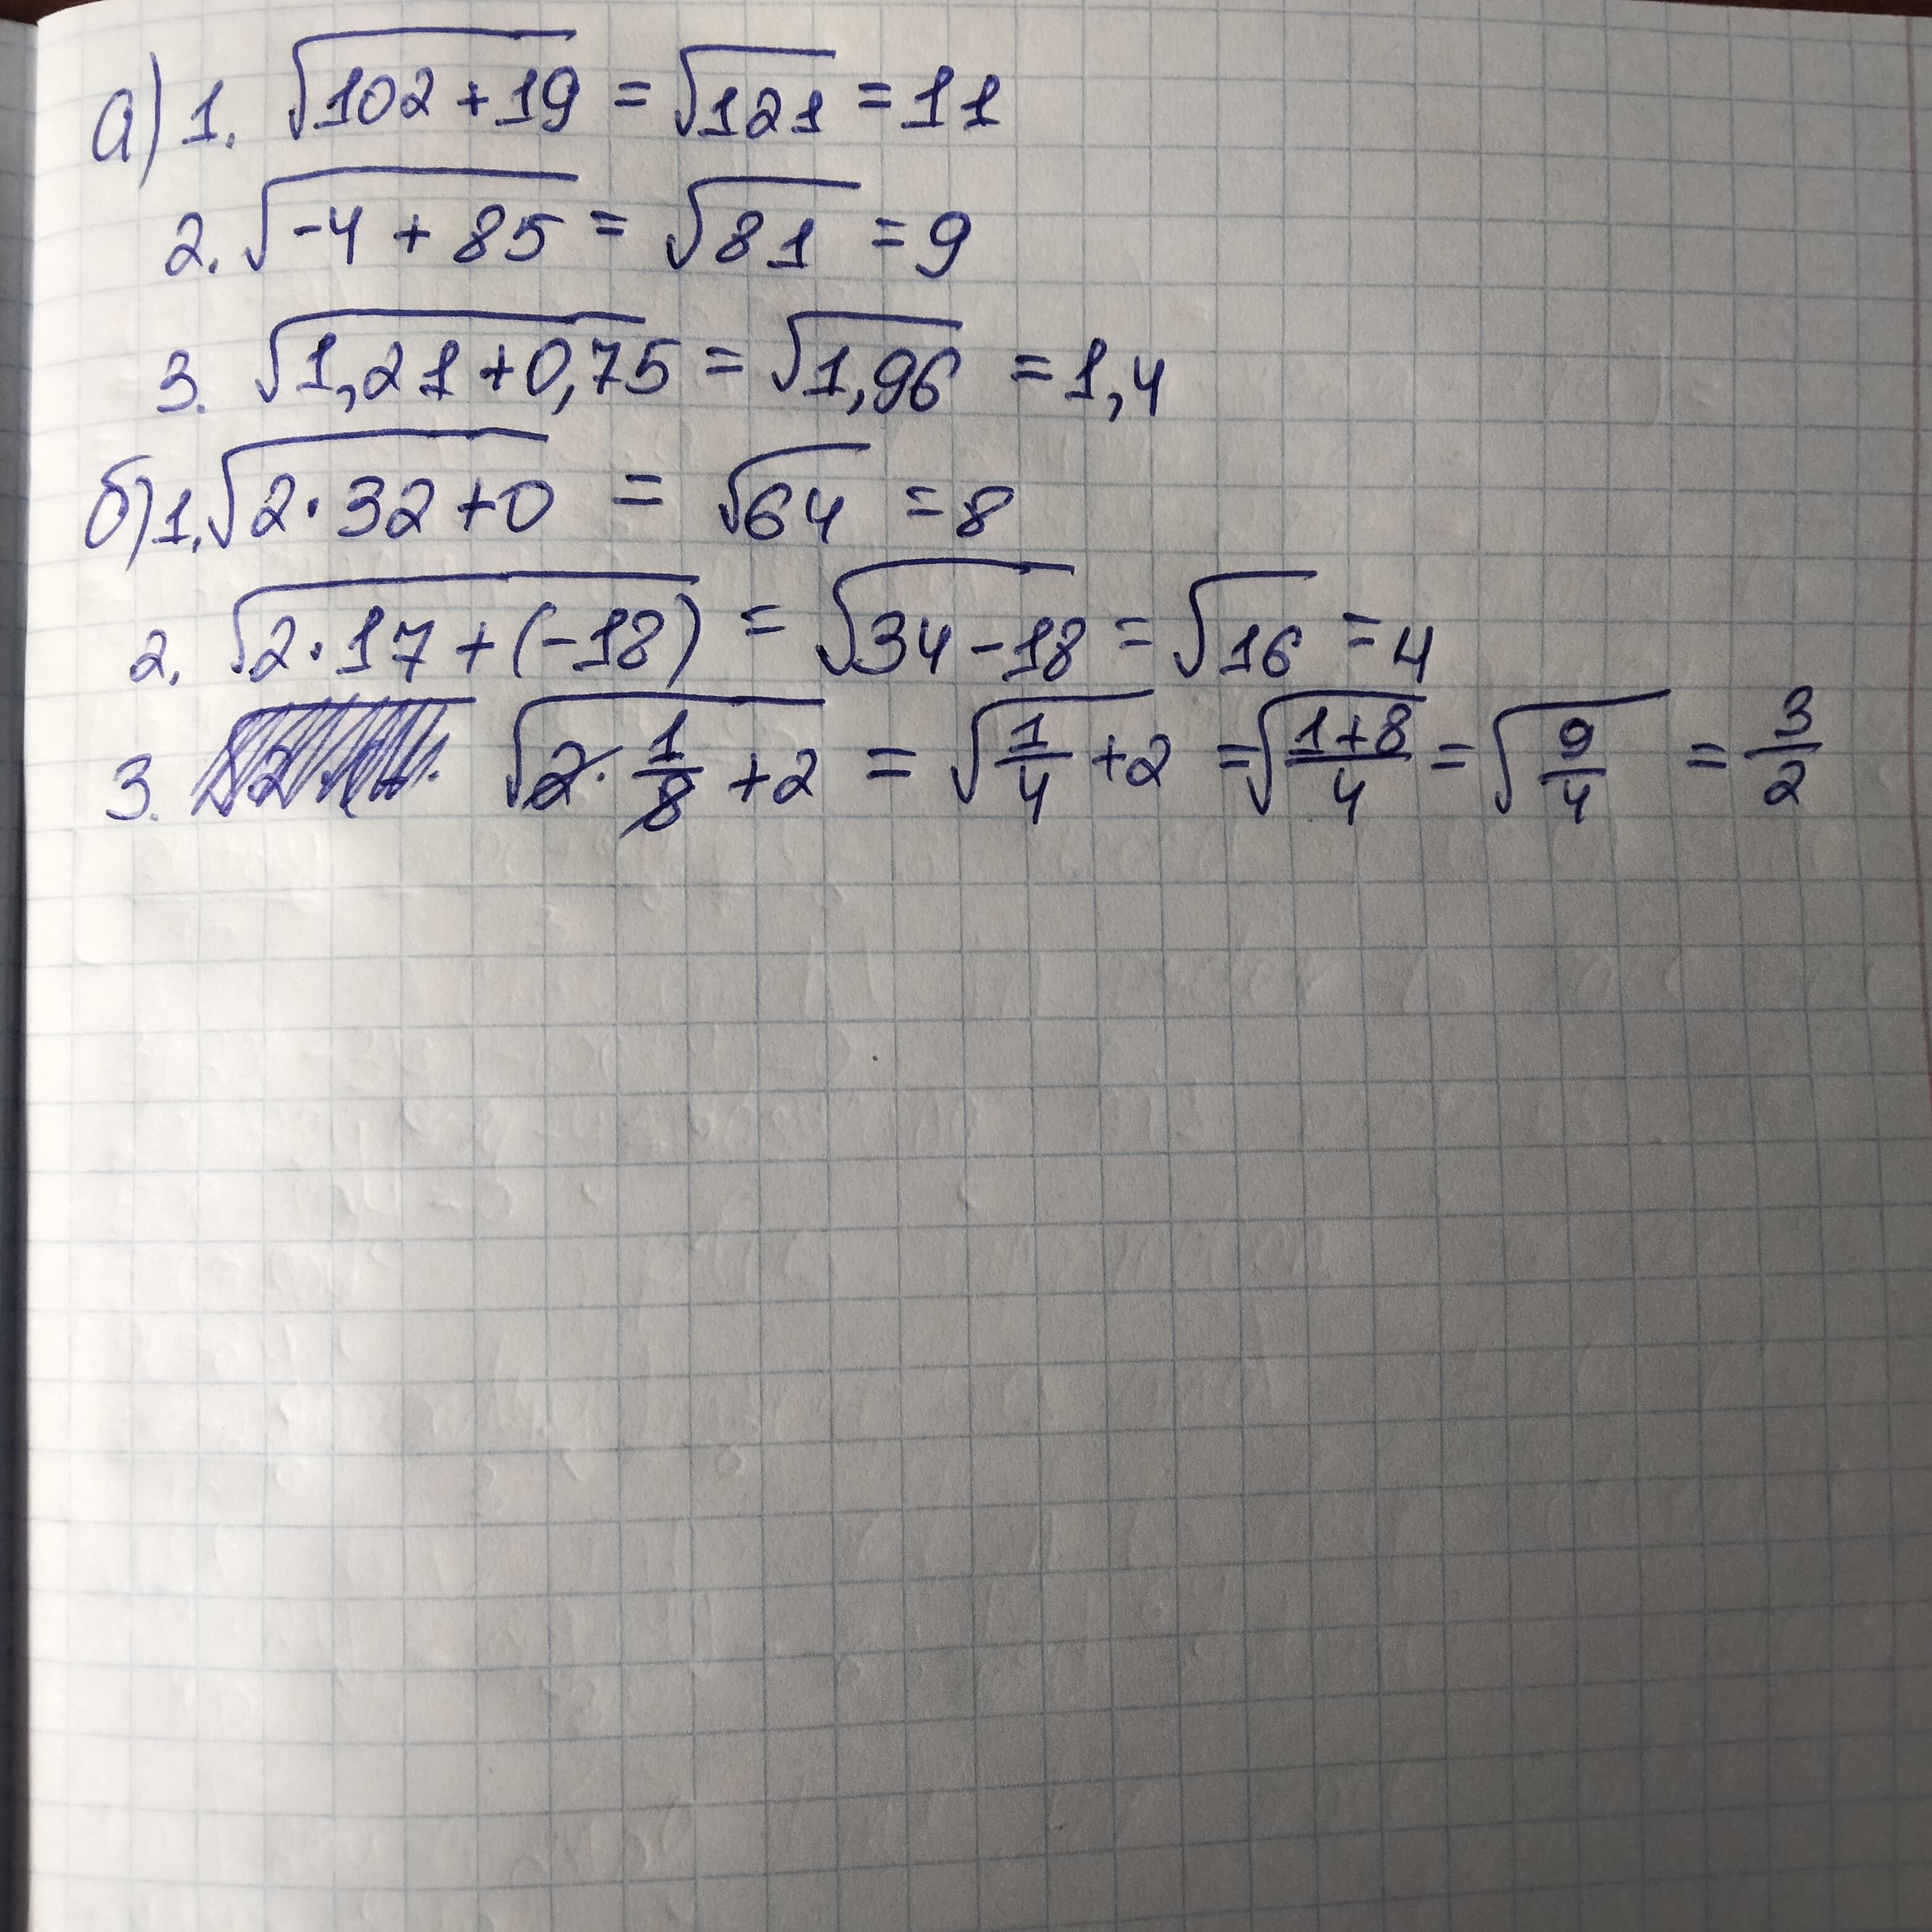 а) 1. √102 + 19 = √121 = 11
2. √-4 + 85 = √81 = 9
3. √1,21 + 0,75 = √1,96 = 1,4
б) 1. √2 · 32 + 0 = √64 = 8
2. √2 · 17 + (-18) = √34 - 18 = √16 = 4
3. √2 · 1/8 + 2 = √1/4 + 2 = √(1+8)/4 = √9/4 = 3/2